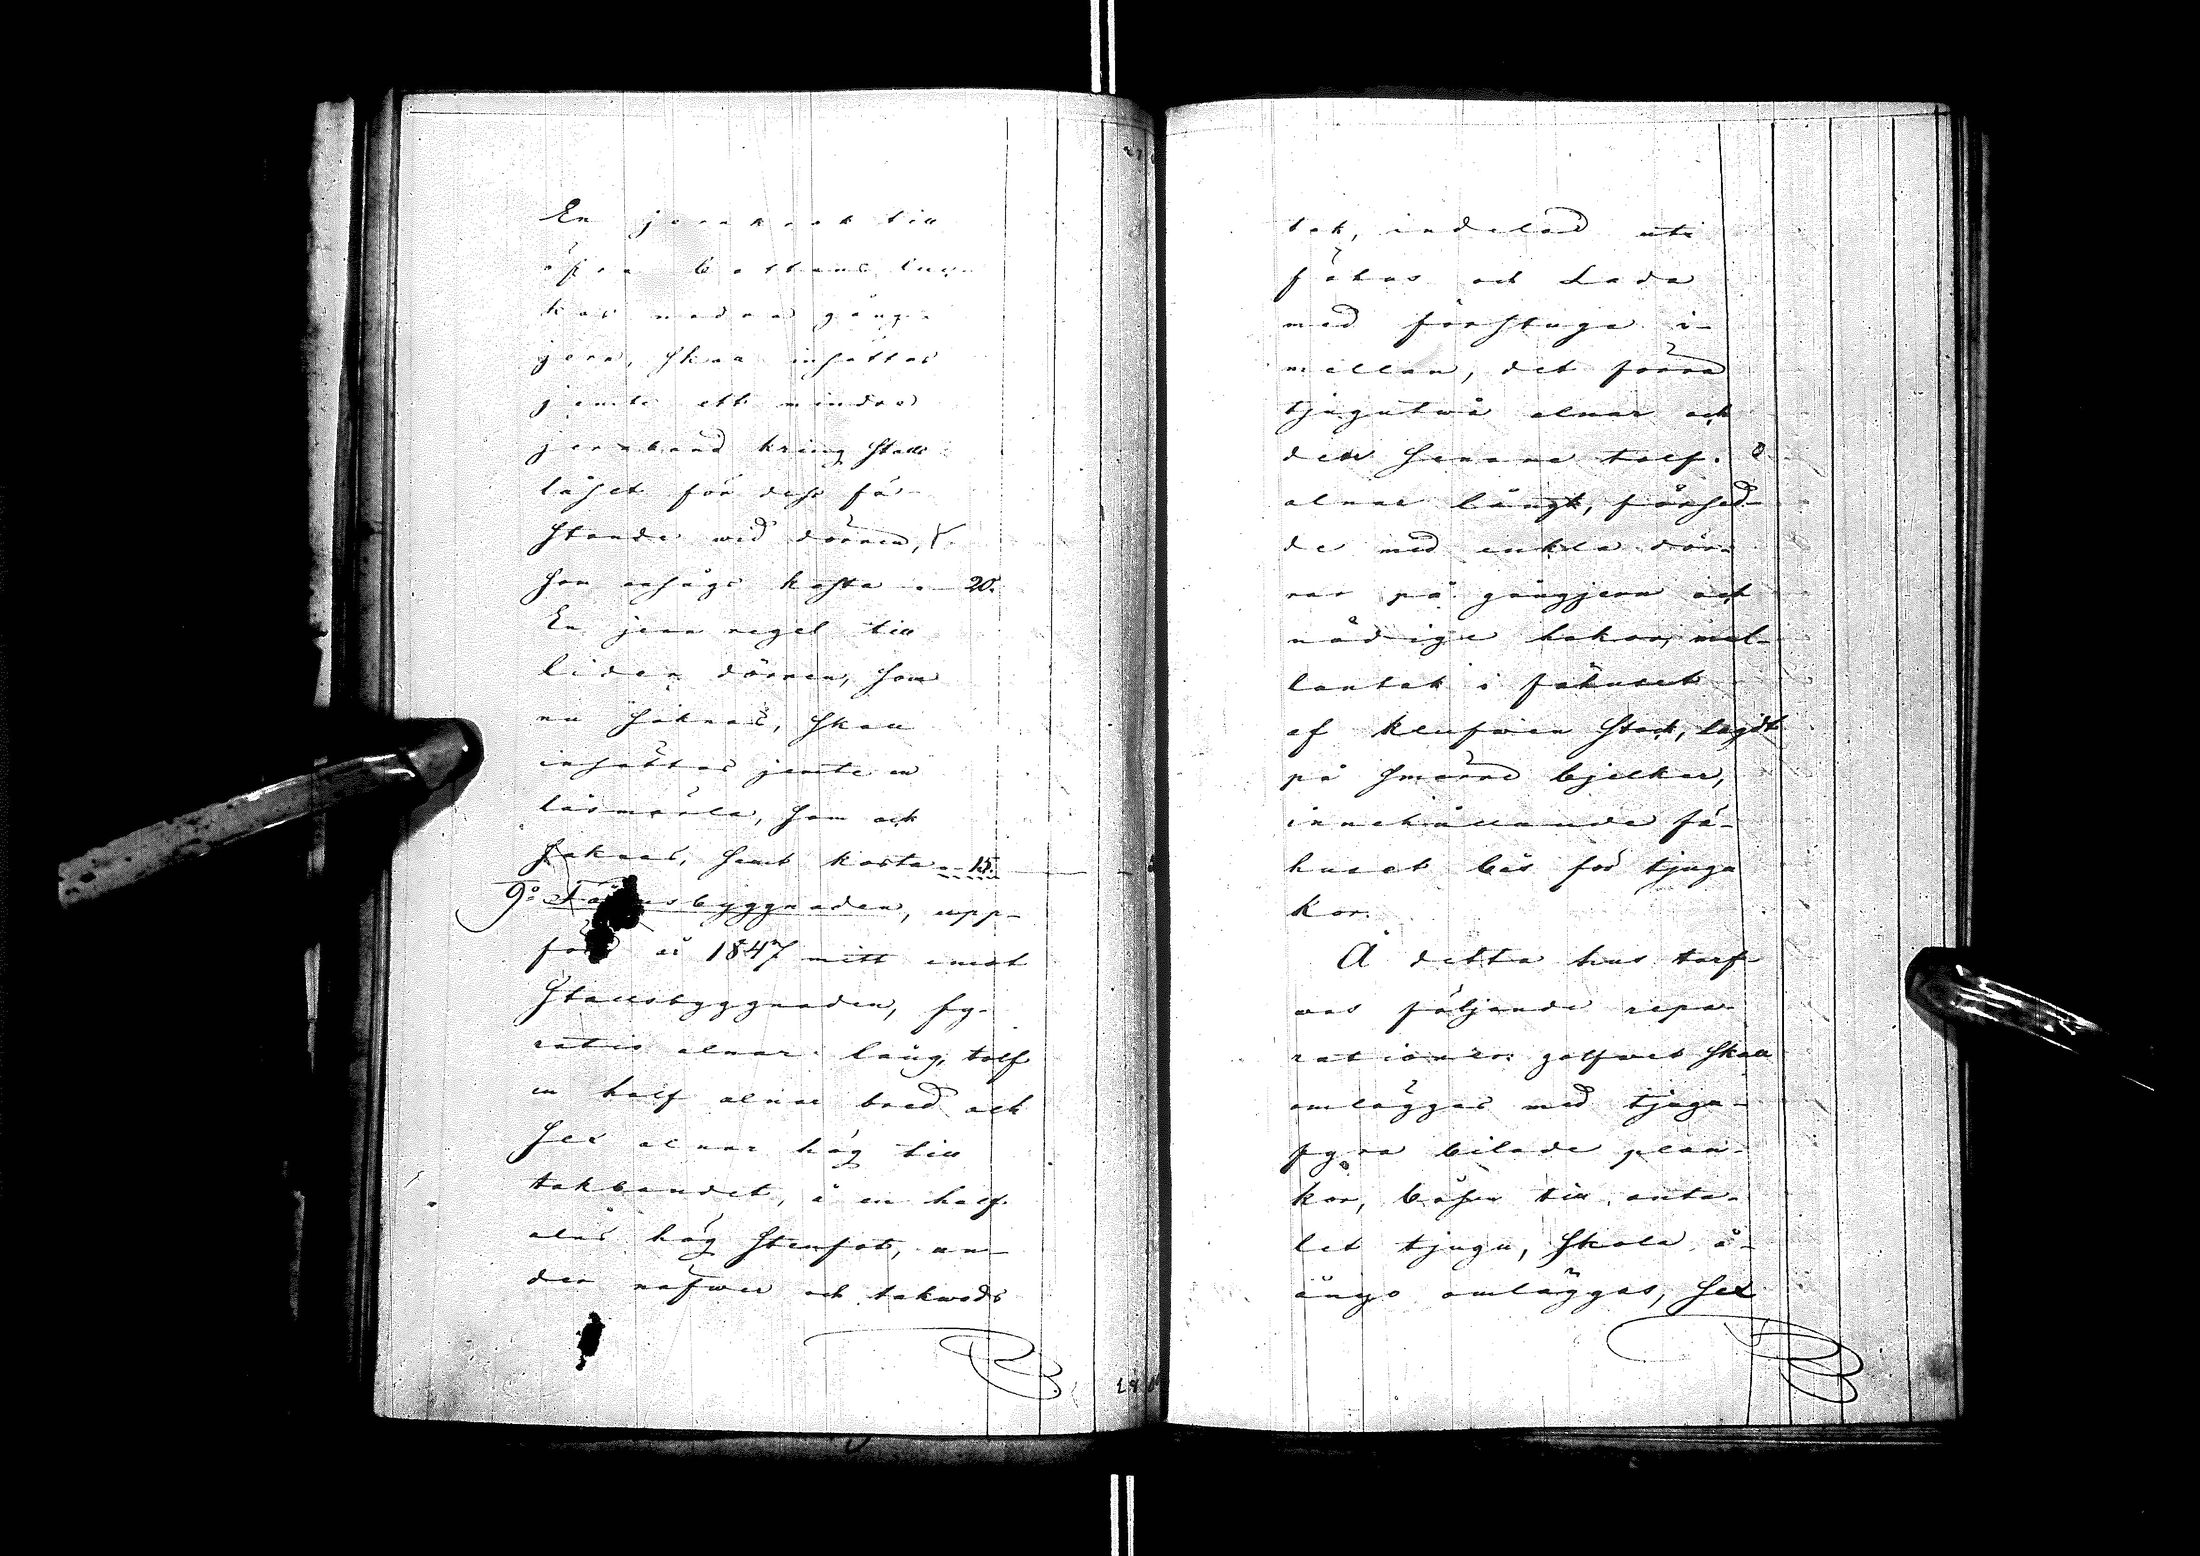 En jernkrok till
öfra bottens luc-
kas nedra gång-
jern, skall insättas
jemte ett mindre
jernband kring stall
låset för dess få
stande wid dörren,
som ansågs kosta . 20.
En jern regel till
lider dörren, som
nu saknas, skall
insättas jemte en
låsmärla, som ock
saknas, samt kosta . 15.
9:o Fähusbyggnaden, upp-
förd år 1847 mitt emot
Stallsbyggnaden, fy-
ratio alnar lång, tolf
en half alnar bred och
sex alnar hög till
takbandet, å en half
alns hög stenfot, un-
der näfwer och takweds
tak, indelad uti
fähus och Lada
med förstuga i-
mellan, det förra
tjugutwå alnar och
den senare tolf.
alnar långt, försed-
de med enkla dör-
rar på gångjern och
nödige hakar, mel-
lantak i fähuset
af klufwen stock, lagdt
på smärre bjelkar,
innehållande fä-
huset bås för tjugu
kor.
Å detta hus tarf-
was följande repa-
rationer: golfwet skall
omläggas med tjugu-
fyra bilade plan-
kor, båsen till anta-
let tjugu, skola å-
ängo omläggas, sex